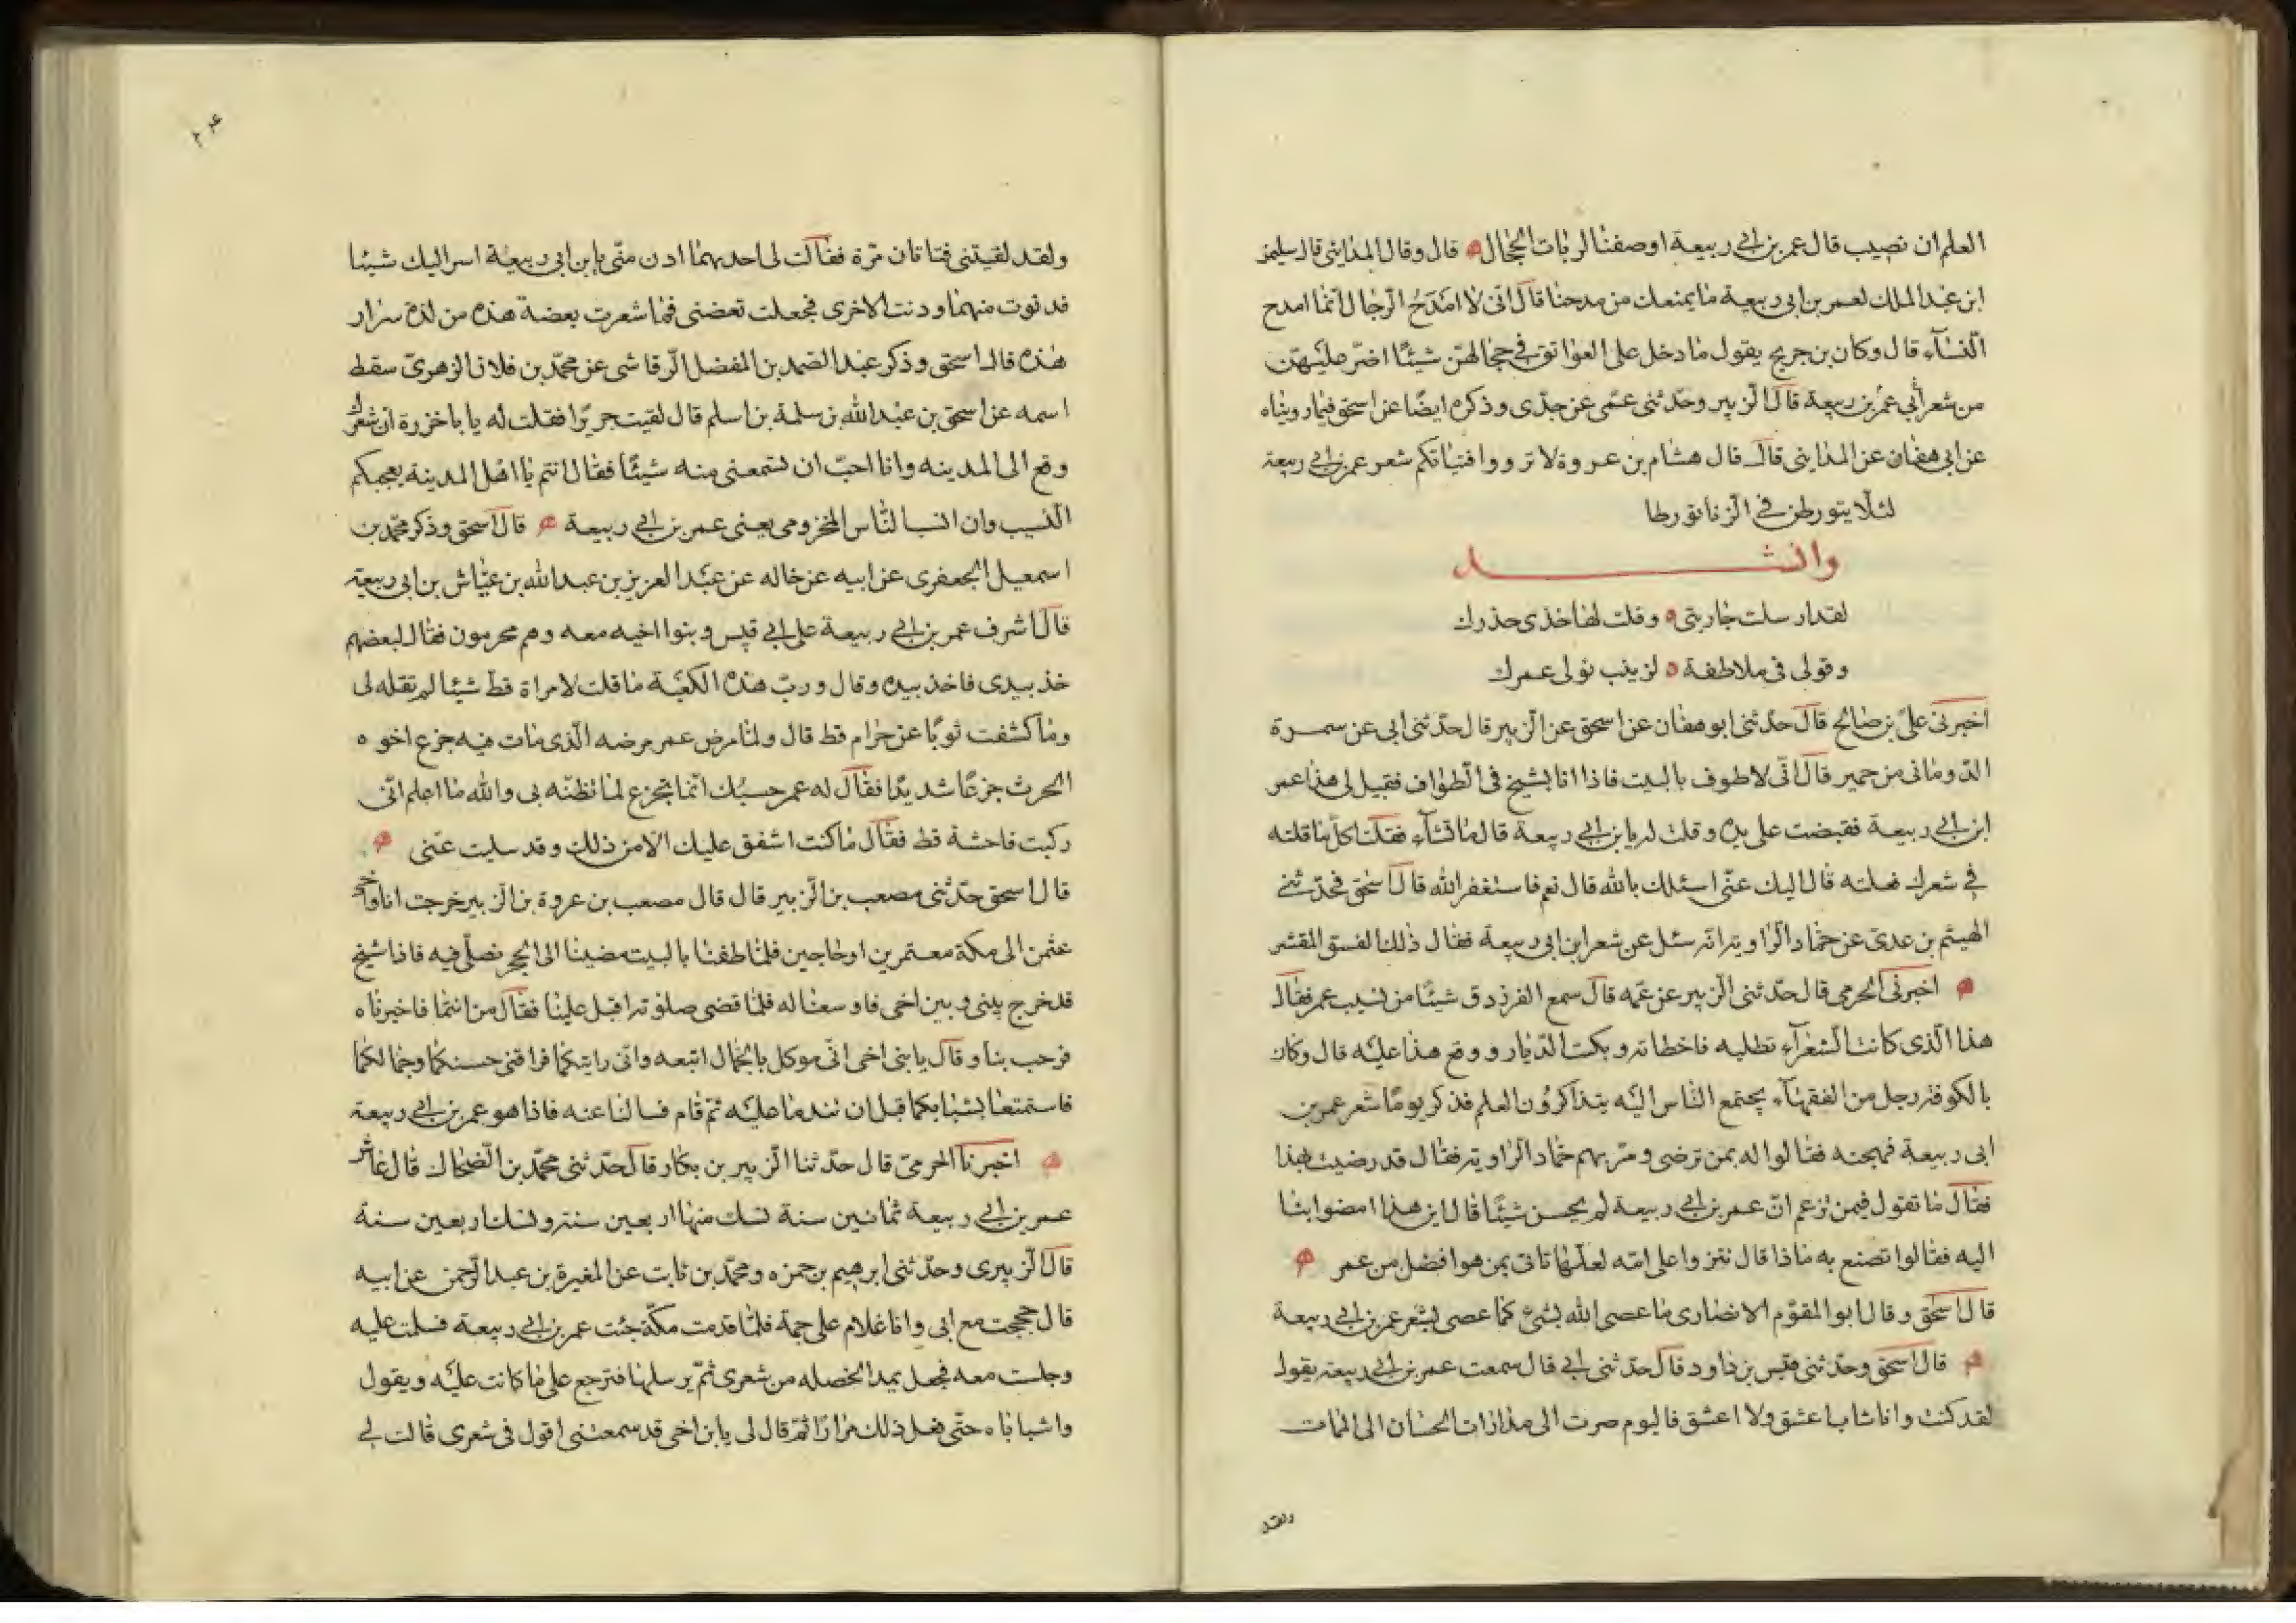 العلم ان نصيب قال عمر بن ابي ربيعة اوصفنا لربات الحجال قال وقال المدايني قال سليمن
ابن عبد الملك لعمر بن ابي ربيعة ما يمنعك من مدحنا قال اني لا امدح الرجال انما امدح
النسآء قال وكان بن جريج يقول ما دخل على العواتق في حجالهن شيئا اضر عليهن
من شعر أبي عمر بن ربيعة قال الزبير وحدثني عمى عن جدى وذكره ايضا عن اسحق فيما رويناه
عن ابي هفان عن المدايني قال قال هشام بن عروة لا ترووا فتياتكم شعر عمر بن ابي ربيعة
لئلا يتورطن في الزنا تورطا
وانشد
لقد ارسلت جاريتي وقلت لها خذى حذرك
وقولى في ملاطفة لزينب نولى عمرك
اخبرني علي بن صالح قال حدثني ابو هفان عن اسحق عن الزبير قال حدثني ابى عن سمرة
الدوماني من حمير قال اني لاطوف بالبيت فاذا انا بشيخ في الطواف فقيل لى هذا عمر
ابن ابي ربيعة فقبضت على يده وقلت له يا بن ابي ربيعة قال ما تشآء فقلت اكل ما قلته
في شعرك فعلته قال اليك عني اسئلك بالله قال نعم فاستغفر الله قال اسحق فحدثني
الهيثم بن عدى عن حماد الراوية انه سئل عن شعر ابن ابى ربيعة فقال ذلك الفستق المقشر
اخبرني الحرمي قال حدثني الزبير عن عمه قال سمع الفرزدق شيئا من نسيب عمر فقال
هذا الذى كانت الشعرآء تطلبه فاخطاته وبكت الديار ووقع هذا عليه قال وكان
بالكوفة رجل من الفقهآء يجتمع الناس اليه يتذاكرون العلم فذكر يوما شعر عمر بن
ابى ربيعة فهجنه فقالوا له بمن ترضى ومر بهم حماد الراوية فقال قد رضيت بهذا
فقال ما تقول فيمن زعم ان عمر بن ابي ربيعة لم يحسن شيئا قال اين هذا امضوا بنا
اليه فقالوا تصنع به ماذا قال ننزوا على امه لعلها تاتى بمن هو افضل من عمر
قال اسحق وقال ابو المقوم الانصارى ما عصى الله بشئ كما عصى بشعر عمر بن ابي ربيعة
قال اسحق وحدثني قيس بن داود قال حدثني ابي قال سمعت عمر بن ابي ربيعة يقول
لقد كنت وانا شاب اعشق ولا اعشق فاليوم صرت الى مدارات الحسان الى الممات
ولقد
ولقد لقيتني فتاتان مرة فقالت لى احديهما ادن منى يا بن ابى ربيعة اسر اليك شيئا
فدنوت منهما ودنت الاخرى فجعلت تعضنى فما شعرت بعضة هذه من لذة سرار
هذه قال اسحق وذكر عبد الصمد بن المفضل الرقاشى عن محمد بن فلان الزهرى سقط
اسمه عن اسحق بن عبد الله بن سلمة بن اسلم قال لقيت جريرا فقلت له يا با خزرة ان شعرك
وقع الى المدينه وانا احب ان تسمعنى منه شيئا فقال انتم يا اهل المدينة يعجبكم
النسيب وان انسب الناس المخزومى يعنى عمر بن ابي ربيعة قال اسحق وذكر محمد بن
اسمعيل الجعفرى عن ابيه عن خاله عن عبد العزيز بن عبد الله بن عياش بن ابى ربيعة
قال اشرف عمر بن ابي ربيعة على ابي قيس وبنوا اخيه معه وهم محرمون فقال لبعضهم
خذ بيدى فاخذ بيده وقال ورب هذه الكعبة ما قلت لامراة قط شيئا لم تقله لى
وما كشفت ثوبا عن حرام قط قال ولما مرض عمر مرضه الذى مات فيه جزع اخوه
الحرث جزعا شديدا فقال له عمر حسبك انما تجزع لما تظنه بى والله ما اعلم انى
ركبت فاحشة قط فقال ما كنت اشفق عليك الا من ذلك وقد سليت عنى
قال اسحق حدثني مصعب بن الزبير قال قال مصعب بن عروة بن الزبير خرجت انا واخى
عثمن الى مكة معتمرين او حاجين فلما طفنا بالبيت مضينا الى الحجر نصلى فيه فاذا شيخ
قد خرج بينى وبين اخى فاوسعنا له فلما قضى صلوته اقبل علينا فقال من انتما فاخبرناه
فرحب بنا وقال يا بنى اخى انى موكل بالجمال اتبعه وانى رايتكما فراقنى حسنكما وجمالكما
فاستمتعا بشبابكما قبل ان تندما عليه ثم قام فسالنا عنه فاذا هو عمر بن ابي ربيعة
اخبرنا الحرمى قال حدثنا الزبير بن بكار قال حدثني محمد بن الضحاك قال عاش
عمر بن ابي ربيعة ثمانين سنة نسك منها اربعين سنة وفتك اربعين سنة
قال الزبيرى وحدثنى ابرهيم بن حمزه ومحمد بن ثابت عن المغيرة بن عبد الرحمن عن ابيه
قال حججت مع ابى وانا غلام على جمة فلما قدمت مكة جئت عمر بن ابي ربيعة فسلمت عليه
وجلست معه فجعل يمد الخصله من شعرى ثم يرسلها فترجع على ما كانت عليه ويقول
واشباباه حتى فعل ذلك مرارا ثم قال لى يا بن اخى قد سمعتنى اقول فى شعرى قالت لي